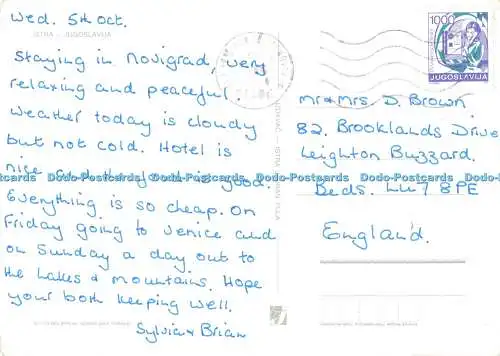 Wed. 5th Oct.
ISTRA – JUGOSLAVIJA
Staying in Novigrad, very
relaxing and peaceful.
Weather today is cloudy
but not cold. Hotel is
nice and the food is good.
Everything is so cheap. On
Friday going to Venice and
on Sunday a day out to
the Lakes & Mountains. Hope
your both keeping well.
Sylvia & Brian
1000
JUGOSLAVIJA
Mr & Mrs D. Brown
82, Brooklands Drive
Leighton Buzzard.
Beds. LU7 8PE
England.
Dodo-Postcards Dodo-Postcards Dodo-Postcards Dodo-Postcards Dodo-Postcards